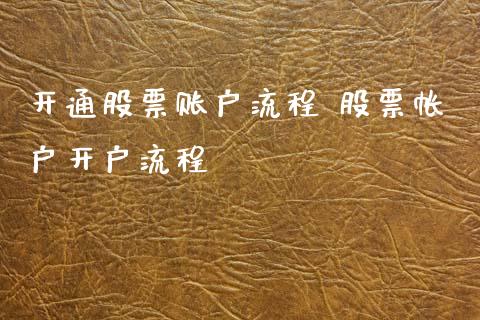 开通股票账户流程 股票帐
户开户流程